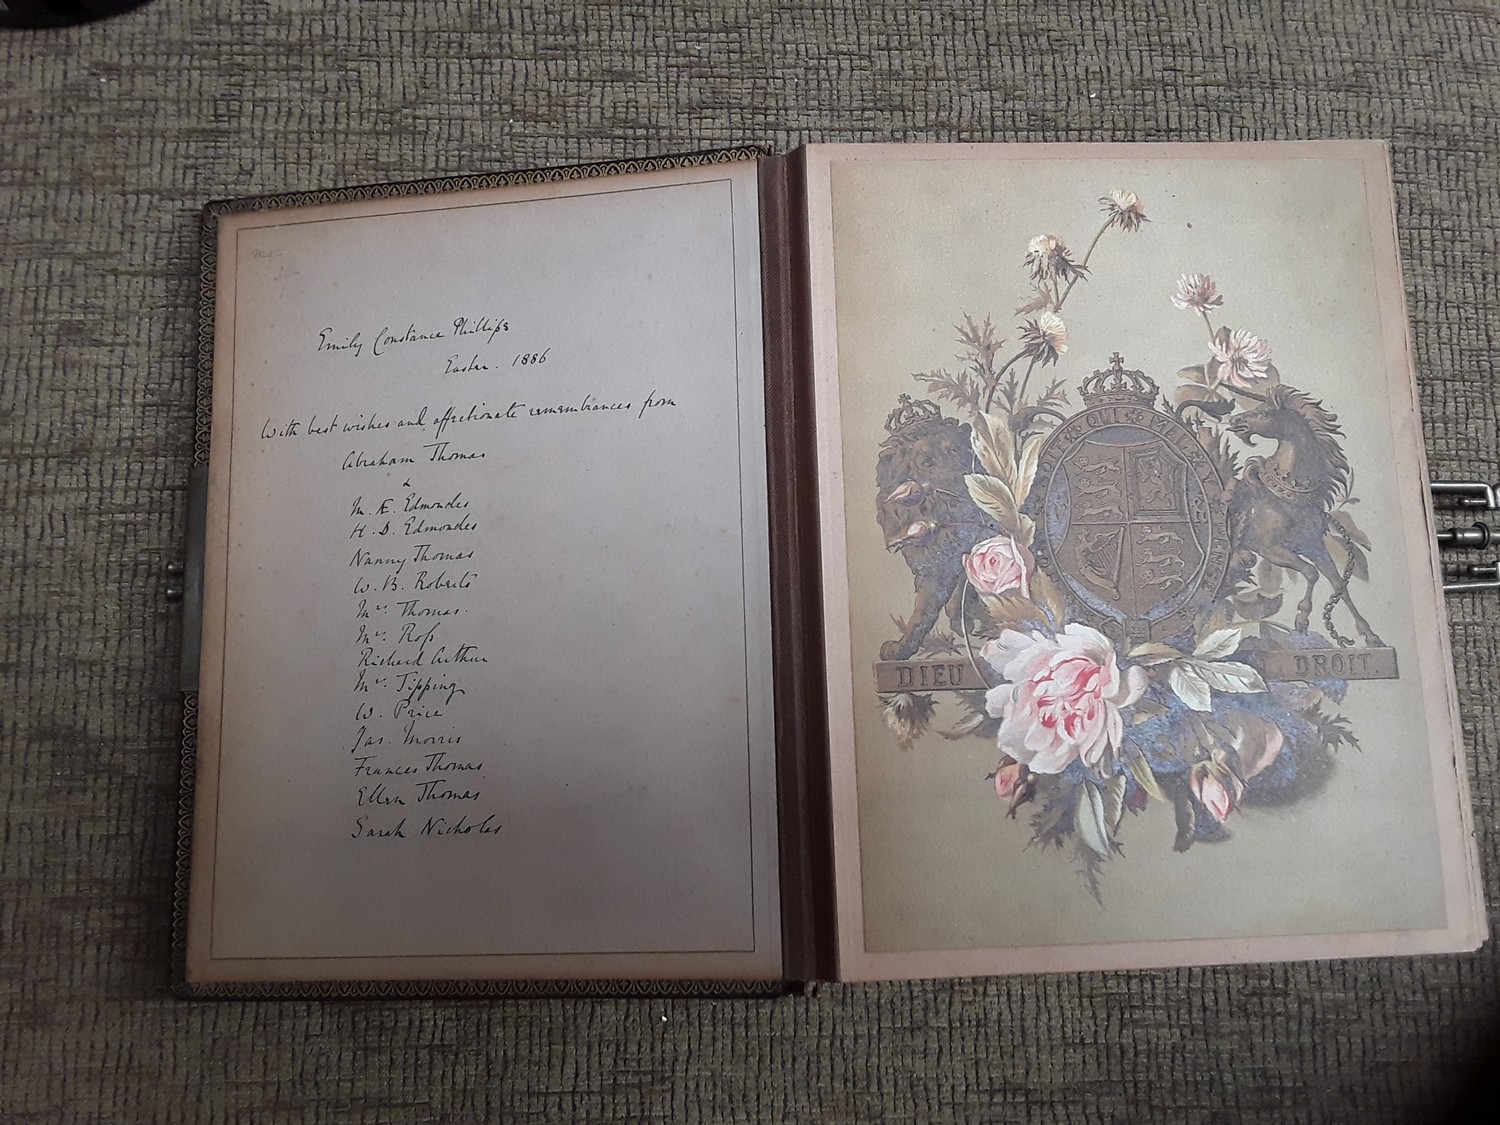 Emily Constance Phillips
Easter. 1886
With best wishes and affectionate remembrances from
Abraham Thomas
&
M. E. Edmondes
H. D. Edmondes
Nanny Thomas
W. B. Roberts
Mrs. Thomas.
Mr. Ross
Richard Arthur
Mr. Tipping
W. Price
Jas. Morris
Frances Thomas
Ellen Thomas
Sarah Nicholas
QUI MAL Y
DIEU DROIT.